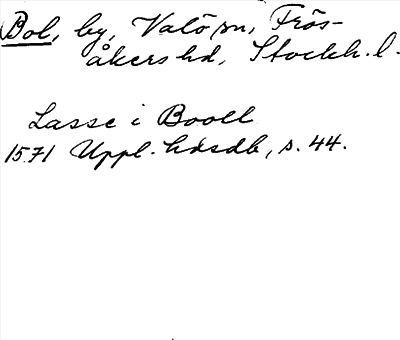 Bol, by, Valö sn, Frös-
åkers hd, Stockh. l.
Lasse i Booll
1571 Uppl. hdsdb, s. 44.